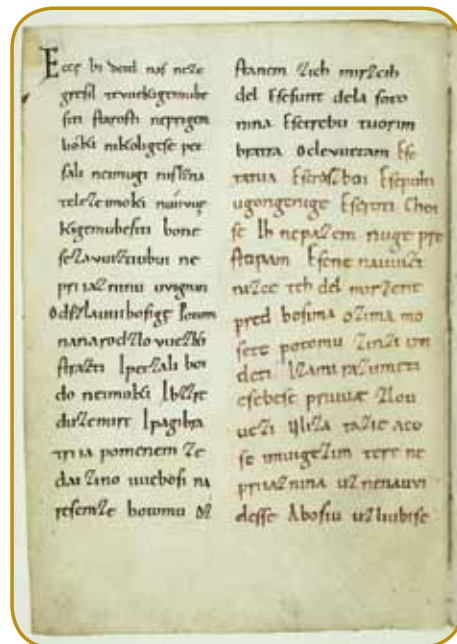 Ecce bi detd naſ neze
greſil tevuekigemube
ſiti ſtaroſti neprigem
lióki nikoligeſe pet
ſali neimugi niſlzna
teleze imoki nuúvuę
kigemubeſiti bone
ſezavuiztiubui ne
priiazninu uvignan
Odſzlauuiboſigę Potom
nanarodzlovuezki
ſtrazti Ipetzali boi
do neimoki Ibzzre
duzemirt Ipagibra
triia pomenem ze
dai zinouuebozi na
reſemze botomu oz
ſtanem zich mirzcih
del Eſeſunt dela ſoto
nina Eſetrebu tuorim
bratra Oclevuetam Eſe
tatua Eſerazboi Eſepulti
ugongenige Eſeroti Choi
ſe Ih nepazem nuge pre
ſtopam Eſene nauuizt
nizce teh del mirzene
pred boſima ozima mo
ſete potomu zinzi vvi
deti Izami razumeti
eſebeſe priuuae zlou
uezi Uliza tazie aco
ſe imuigezim tere ne
priiaznina uznenauvi
deſſe Aboſiu uzliubiſe